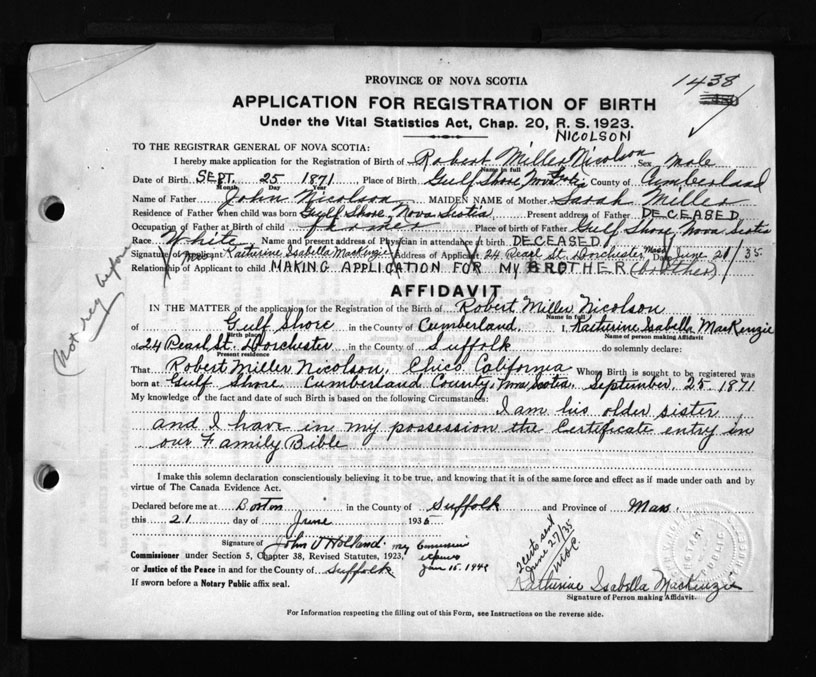 PROVINCE OF NOVA SCOTIA
1438
APPLICATION FOR REGISTRATION OF BIRTH
Under the Vital Statistics Act, Chap. 20, R. S. 1923.
NICOLSON
TO THE REGISTRAR GENERAL OF NOVA SCOTIA:
I hereby make application for the Registration of Birth of Robert Miller Nicolson Sex male
Name in full
Date of Birth SEPT. 25 1871 Place of Birth Gulf Shore, Nova Scotia County of Cumberland
Month Day Year
Name of Father John Nicolson MAIDEN NAME of Mother Sarah Miller
Residence of Father when child was born Gulf Shore, Nova Scotia Present address of Father DECEASED
Occupation of Father at Birth of child farmer Place of birth of Father Gulf Shore, Nova Scotia
Race White Name and present address of Physician in attendance at birth DECEASED
Signature of Applicant Mrs Katherine Isabella MacKenzie Address of Applicant 24 Pearl St. Dorchester, Mass Date June 21/35
Relationship of Applicant to child MAKING APPLICATION FOR MY BROTHER (brother)
(Not reg before)
AFFIDAVIT
IN THE MATTER of the application for the Registration of the Birth of Robert Miller Nicolson
Name in full
of Gulf Shore in the County of Cumberland. I, Katherine Isabella MacKenzie
Birth place Name of person making Affidavit
of 24 Pearl St. Dorchester in the County of Suffolk do solemnly declare:
Present residence
That Robert Miller Nicolson, Chico California Whose Birth is sought to be registered was
born at Gulf Shore Cumberland County, Nova Scotia, September, 25 1871
My knowledge of the fact and date of such Birth is based on the following Circumstances: I am his older sister
and I have in my possession the Certificate entry in
our Family Bible
I make this solemn declaration conscientiously believing it to be true, and knowing that it is of the same force and effect as if made under oath and by
virtue of The Canada Evidence Act.
Declared before me at Boston in the County of Suffolk and Province of Mass.
this 21 day of June 1935
Signature of John J Holland my Commission
Commissioner under Section 5, Chapter 38, Revised Statutes, 1923, expires
or Justice of the Peace in and for the County of Suffolk Jan 15. 1942
If sworn before a Notary Public affix seal.
sent
June 27/35
Katherine Isabella MacKenzie
Signature of Person making Affidavit.
For Information respecting the filling out of this Form, see Instructions on the reverse side.